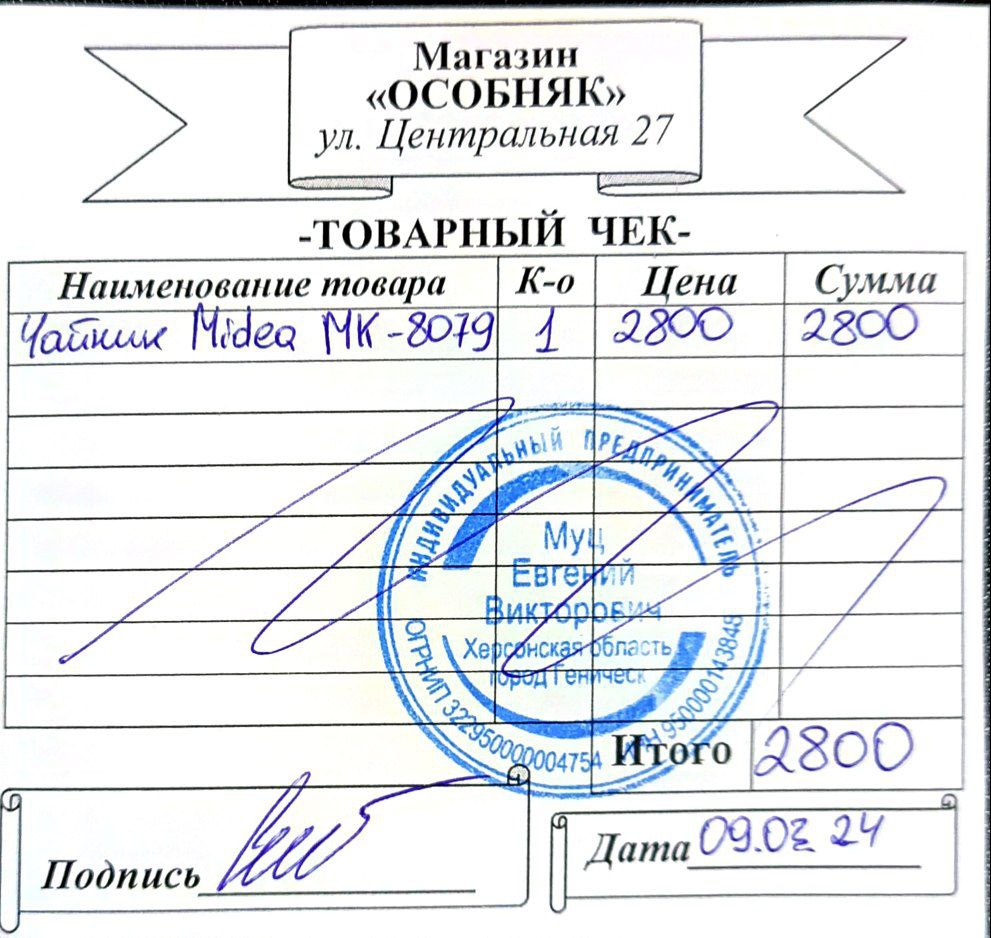 Магазин
«ОСОБНЯК»
ул. Центральная 27
-ТОВАРНЫЙ ЧЕК-
Наименование товара К-о Цена Сумма
Чайник Midea МК-8079 1 2800 2800
ИНДИВИДУАЛЬНЫЙ ПРЕДПРИНИМАТЕЛЬ
Муц
Евгений
Викторович
Херсонская область
город Геническ
ОГРНИП 322950000004754 ИНН 950000143848
Итого 2800
Подпись
Дата 09.03 24